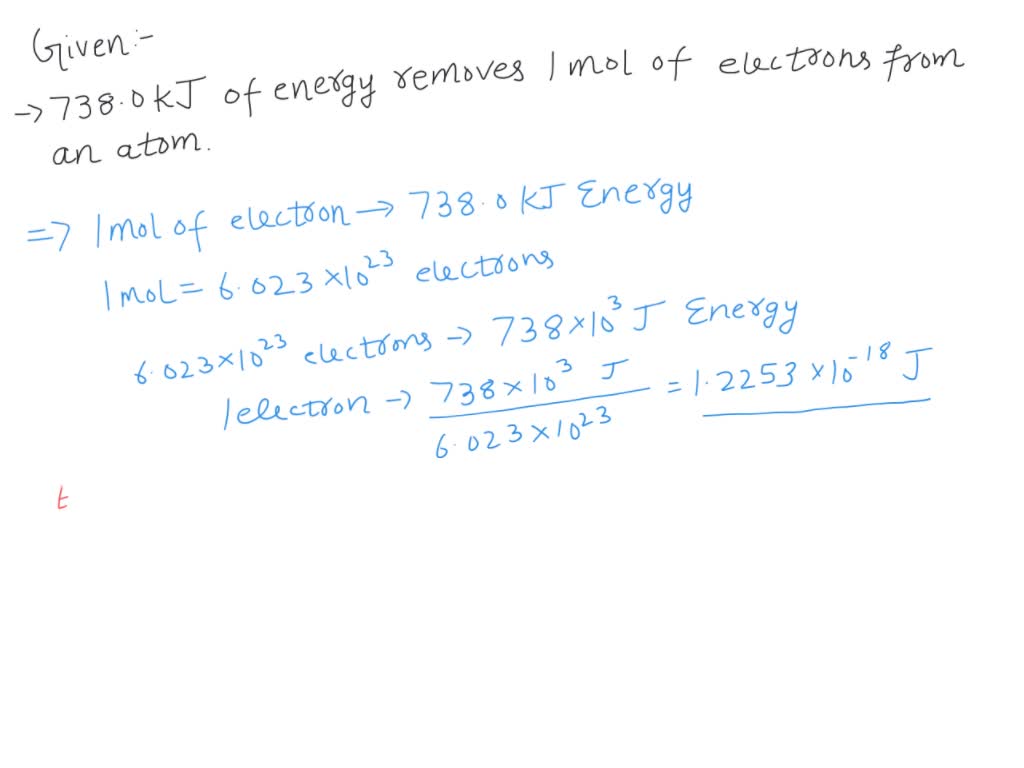 Given:-
→ 738.0 kJ of energy removes 1 mol of electrons from
an atom.
⇒ 1 mol of electron → 738.0 kJ Energy
1 mol = 6.023 × 10²³ electrons
6.023 × 10²³ electrons → 738 × 10³ J Energy
1 electron → 738 × 10³ J / 6.023 × 10²³ = 1.2253 × 10⁻¹⁸ J
t